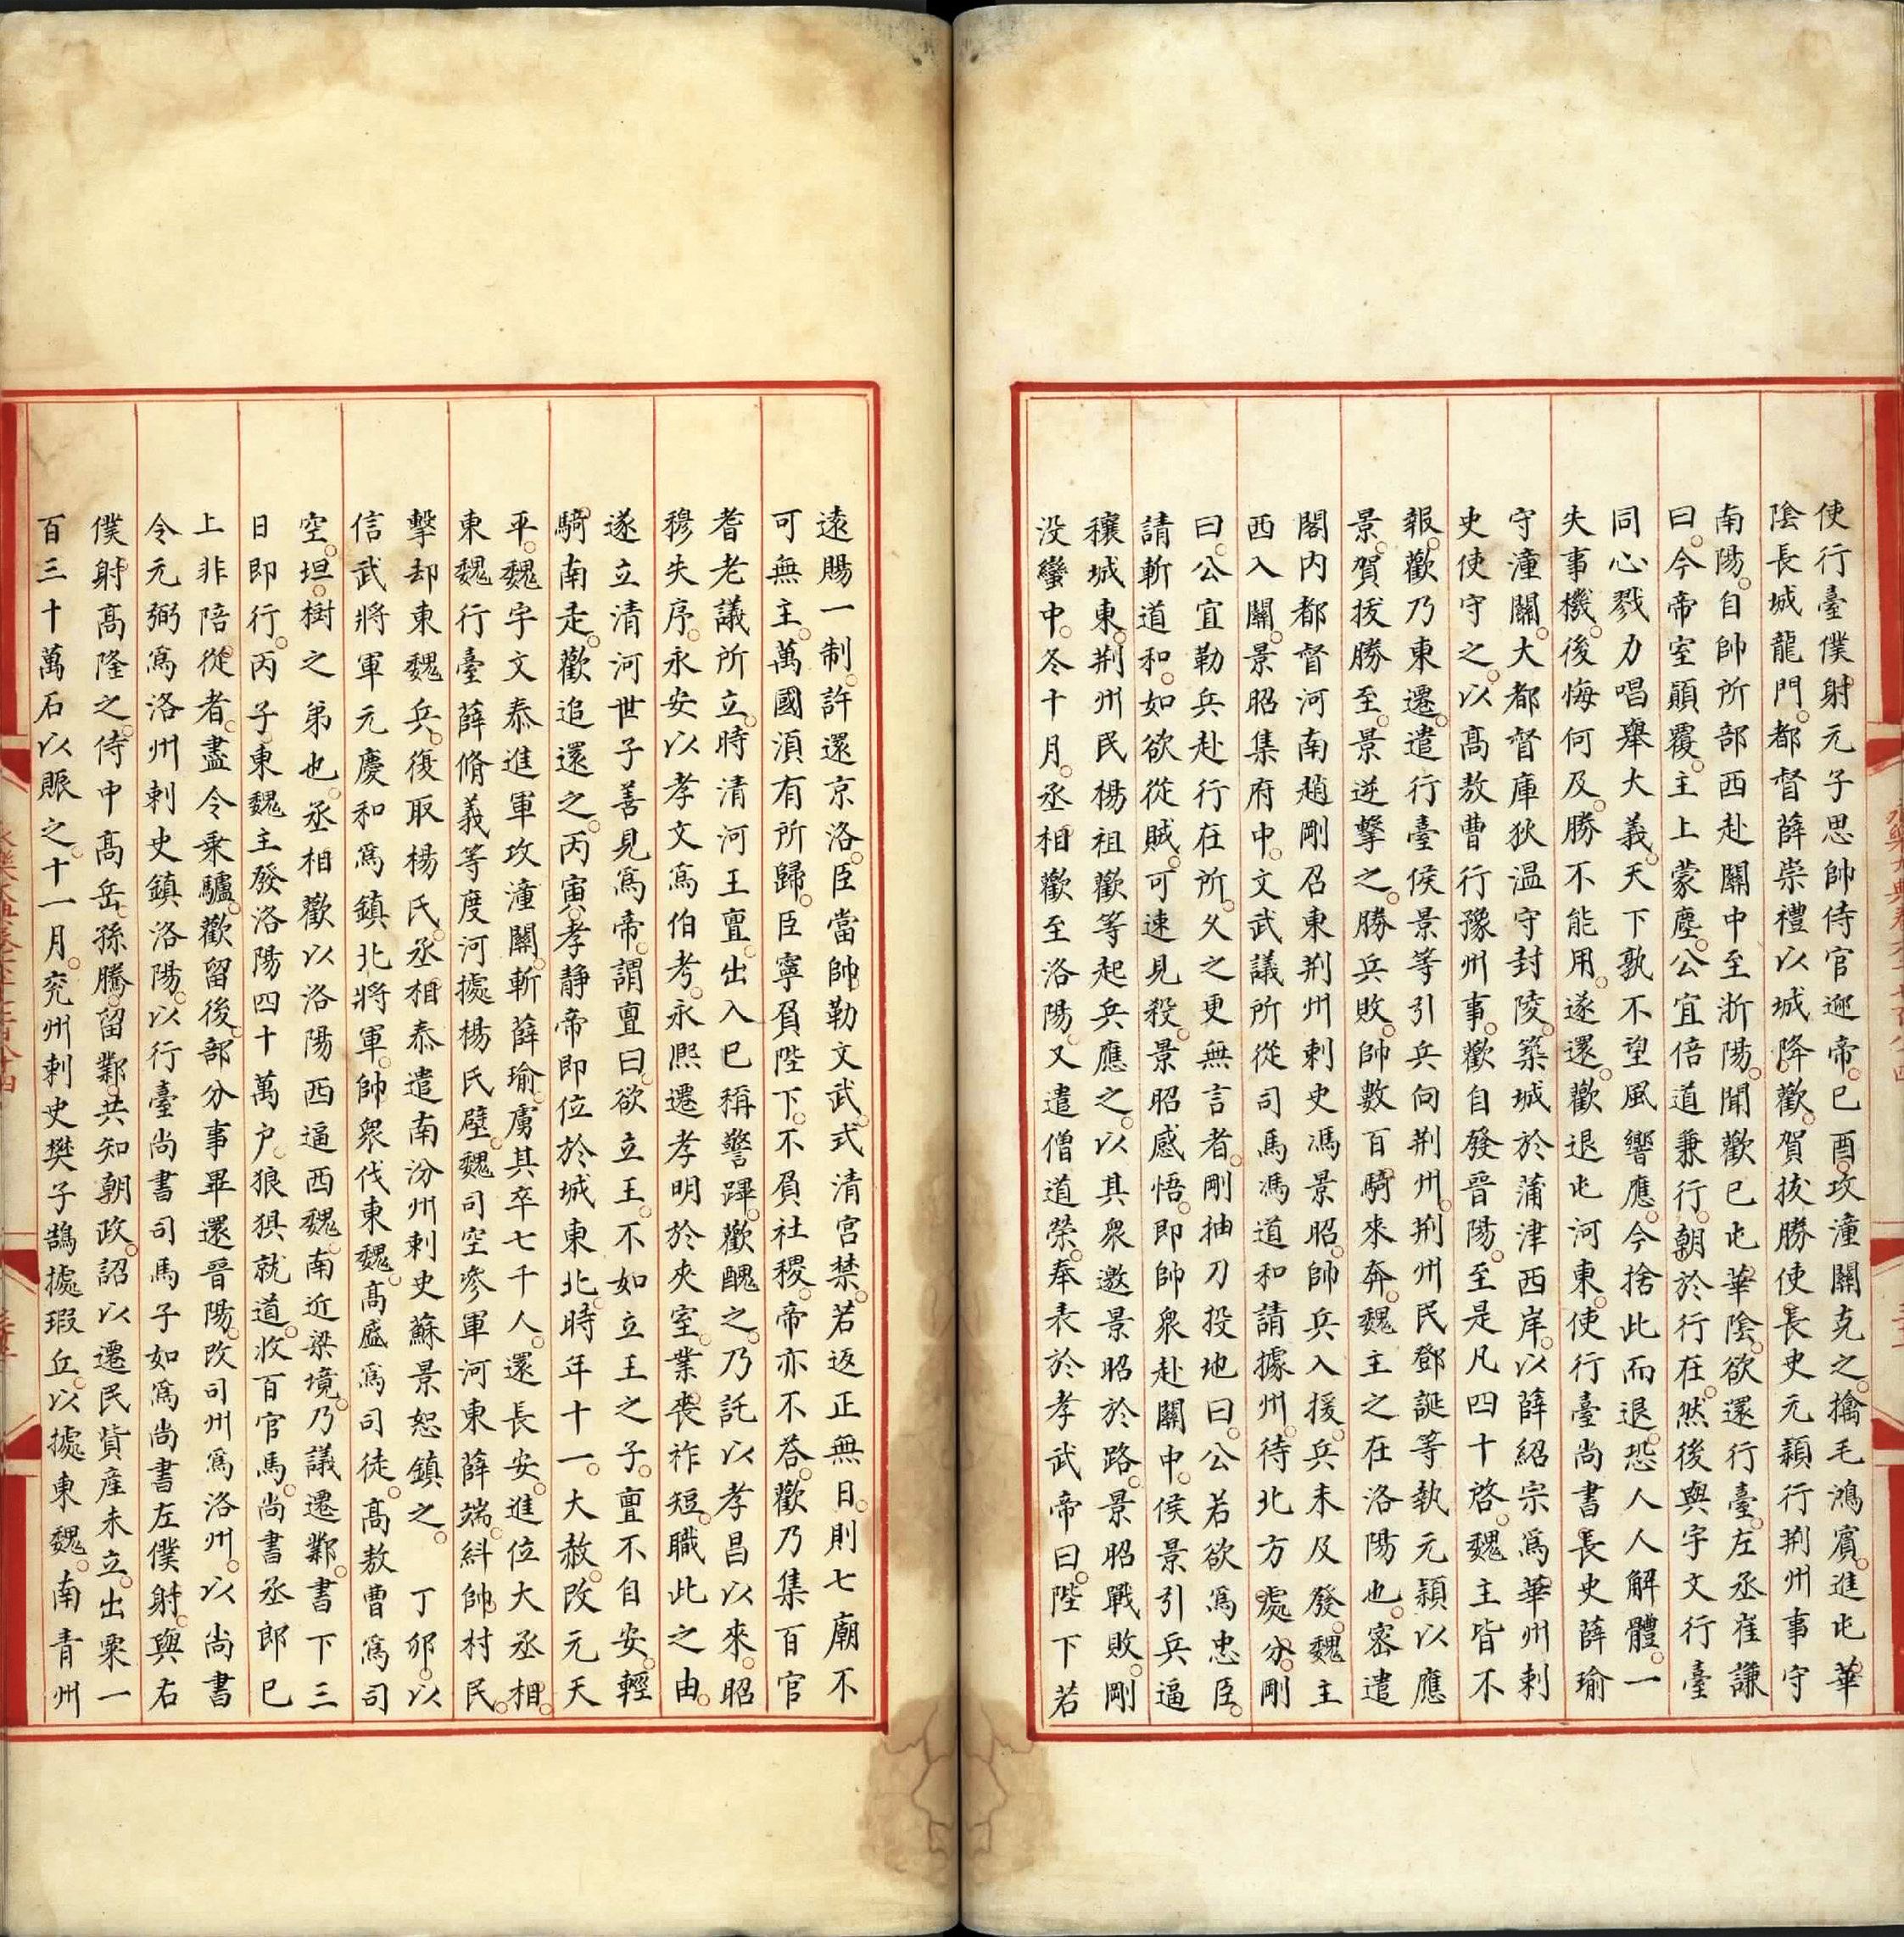 使行臺僕射元子思帥侍官迎帝己酉攻潼關克之擒毛鴻賓進屯華
陰長城龍門都督薛崇禮以城降歡賀拔勝使長史元穎行荆州事守
南陽自帥所部西赴關中至淅陽聞歡已屯華陰欲還行臺左丞崔謙
曰今帝室顚覆主上蒙塵公宜倍道兼行朝於行在然後與宇文行臺
同心戮力唱舉大義天下孰不望風響應今捨此而退恐人人解體一
失事機後悔何及勝不能用遂還歡退屯河東使行臺尚書長史薛瑜
守潼關大都督庫狄温守封陵築城於蒲津西岸以薛紹宗爲華州刺
史使守之以髙敖曹行豫州事歡自發晉陽至是凡四十啓魏主皆不
報歡乃東還遣行臺侯景等引兵向荆州荆州民鄧誕等執元穎以應
景賀拔勝至景逆擊之勝兵敗帥數百騎來奔魏主之在洛陽也宻遣
閣内都督河南趙剛召東荆州刺史馮景昭帥兵入援兵未及發魏主
西入關景昭集府中文武議所從司馬馮道和請據州待北方處分剛
曰公宜勒兵赴行在所久之更無言者剛抽刀投地曰公若欲爲忠臣
請斬道和如欲從賊可速見殺景昭感悟即帥衆赴關中侯景引兵逼
穰城東荆州民楊祖歡等起兵應之以其衆邀景昭於路景昭戰敗剛
没蠻中冬十月丞相歡至洛陽又遣僧道榮奉表於孝武帝曰陛下若
遠賜一制許還京洛臣當帥勒文武式清宫禁若返正無日則七廟不
可無主萬國須有所歸臣寧負陛下不負社稷帝亦不荅歡乃集百官
耆老議所立時清河王亶出入已稱警蹕歡醜之乃託以孝昌以來昭
穆失序永安以孝文爲伯考永熈遷孝明於夾室業喪祚短職此之由
遂立清河世子善見爲帝謂亶曰欲立王不如立王之子亶不自安輕
騎南走歡追還之丙寅孝静帝即位於城東北時年十一大赦改元天
平魏宇文泰進軍攻潼關斬薛瑜虜其卒七千人還長安進位大丞相
東魏行臺薛脩義等度河據楊氏壁魏司空叅軍河東薛端糾帥村民
擊却東魏兵復取楊氏丞相泰遣南汾州刺史蘇景恕鎮之 丁卯以
信武將軍元慶和爲鎮北將軍帥衆伐東魏髙盛爲司徒髙敖曹爲司
空坦樹之弟也丞相歡以洛陽西逼西魏南近梁境乃議遷鄴書下三
日即行丙子東魏主發洛陽四十萬户狼狽就道收百官馬尚書丞郎已
上非陪從者盡令乗驢歡留後部分事畢還晉陽改司州爲洛州以尚書
令元弼爲洛州刺史鎮洛陽以行臺尚書司馬子如爲尚書左僕射與右
僕射髙隆之侍中髙岳孫騰留鄴共知朝政詔以遷民貲産未立出粟一
百三十萬石以賑之十一月兖州刺史樊子鵠據瑕丘以據東魏南青州